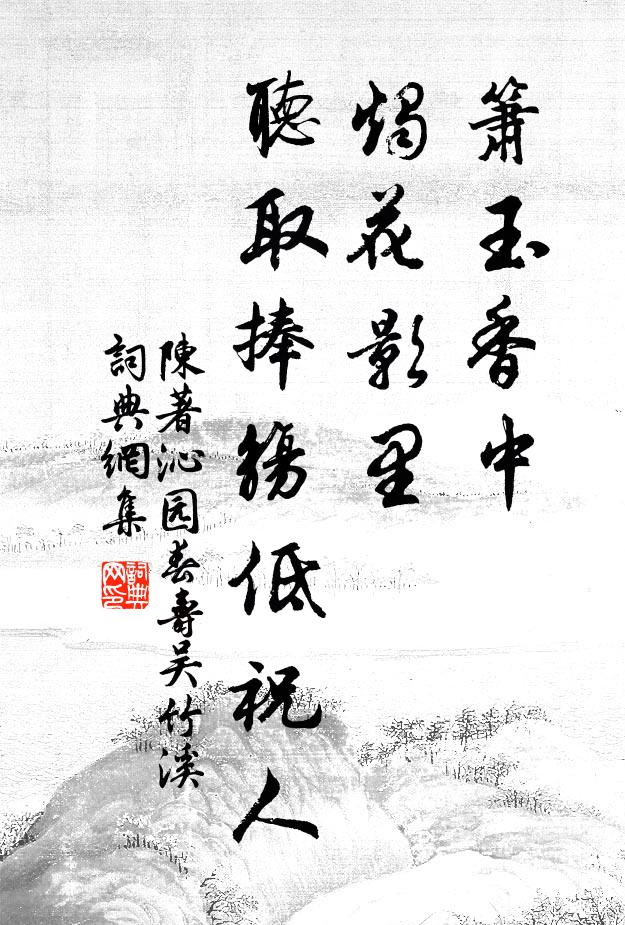 箫玉香中
燭花影里
聽取捧觴低祝人
陳著沁园春壽吴竹溪
詞典網集
詞典网印